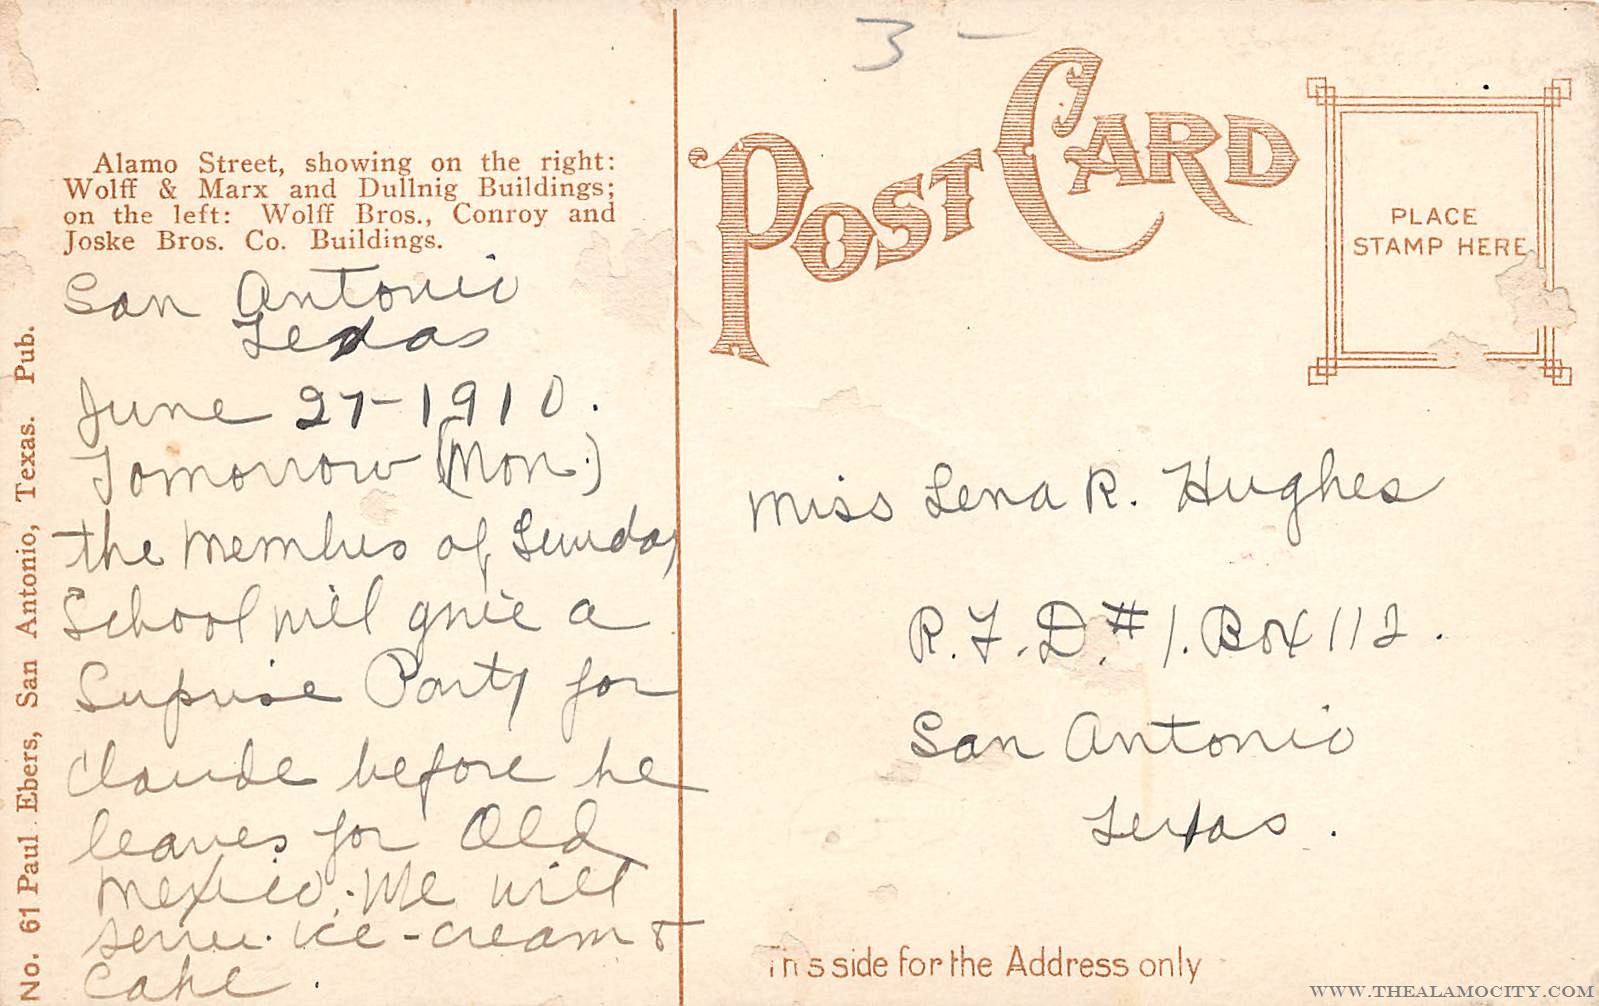 3 -
POST CARD
PLACE
STAMP HERE
Alamo Street, showing on the right:
Wolff & Marx and Dullnig Buildings;
on the left: Wolff Bros., Conroy and
Joske Bros. Co. Buildings.
No. 61 Paul Ebers, San Antonio, Texas. Pub.
San Antonio
Texas
June 27-1910.
Tomorrow (Mon.)
the Members of Sunday
School will give a
Suprise Party for
Claude before he
leaves for Old
Mexico. We will
serve ice-cream &
Cake.
Miss Lena R. Hughes
R.F.D. #1. Box 112.
San Antonio
Texas.
This side for the Address only
WWW.THEALAMOCITY.COM